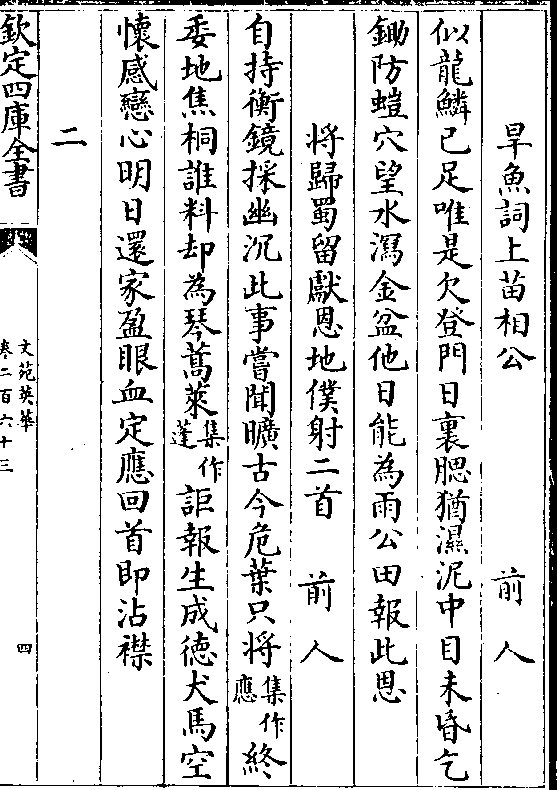 旱魚詞上苗相公　前人
似龍鱗已足唯是欠登門日裏腮猶濕泥中目未昏乞
鋤防螘穴望水瀉金盆他日能為雨公田報此恩
將歸蜀留獻恩地僕射二首　前人
自持衡鏡採幽沉此事嘗聞曠古今危葉只將集作應終
委地焦桐誰料却為琴蒿萊集作蓬詎報生成徳犬馬空
懷感戀心明日還家盈眼血定應回首即沾襟
二
欽定四庫全書
文苑英華
卷二百六十三
四